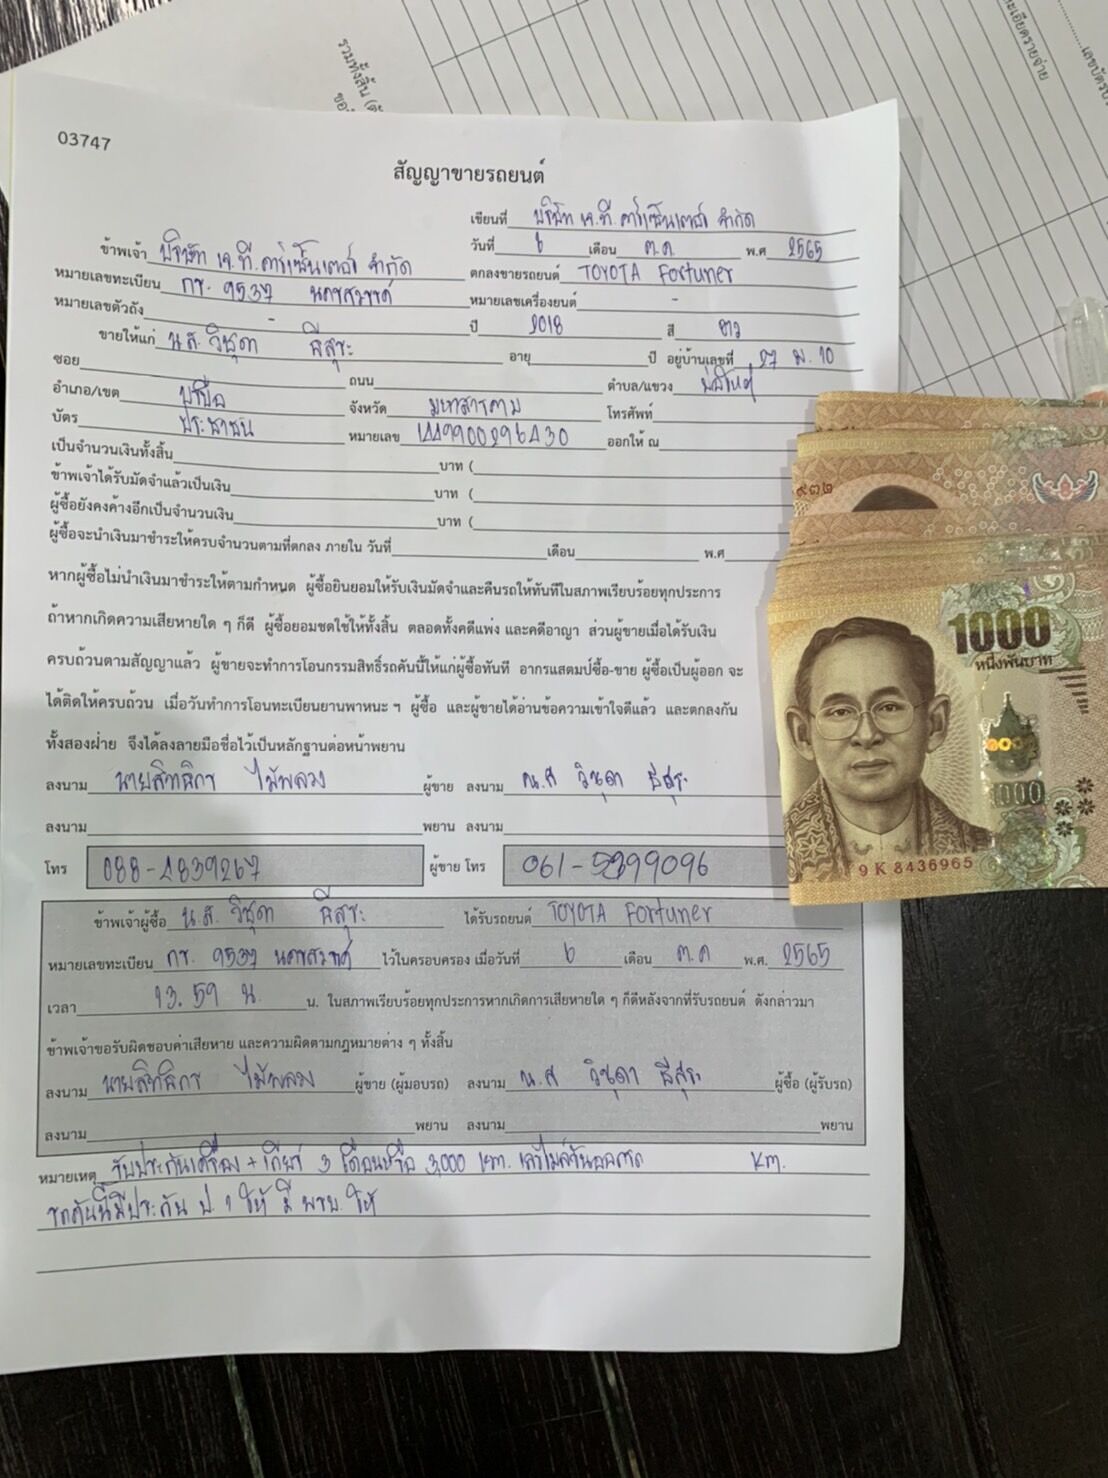 รวมทั้งสิ้น
เลขบัตรป
ละเอียดรายจ่าย
03747
สัญญาขายรถยนต์
เขียนที่ บริษัท เจ.ที.คาร์เซ็นเตอร์ จำกัด
วันที่ 6 เดือน ต.ค พ.ศ 2565
ข้าพเจ้า บริษัท เจ.ที.คาร์เซ็นเตอร์ จำกัด ตกลงขายรถยนต์ TOYOTA Fortuner
หมายเลขทะเบียน กช. 9537 นครสวรรค์ หมายเลขเครื่องยนต์ -
หมายเลขตัวถัง - ปี 2018 สี ขาว
ขายให้แก่ น.ส. วิชุดา สีสุระ อายุ ปี อยู่บ้านเลขที่ 27 ม. 10
ซอย ถนน ตำบล/แขวง บ่อใหญ่
อำเภอ/เขต บรบือ จังหวัด มหาสารคาม โทรศัพท์
บัตร ประชาชน หมายเลข ออกให้ ณ
เป็นจำนวนเงินทั้งสิ้น บาท (
ข้าพเจ้าได้รับมัดจำแล้วเป็นเงิน บาท (
ผู้ซื้อยังคงค้างอีกเป็นจำนวนเงิน บาท (
ผู้ซื้อจะนำเงินมาชำระให้ครบจำนวนตามที่ตกลง ภายใน วันที่ เดือน พ.ศ
หากผู้ซื้อไม่นำเงินมาชำระให้ตามกำหนด ผู้ซื้อยินยอมให้รับเงินมัดจำและคืนรถให้ทันทีในสภาพเรียบร้อยทุกประการ
ถ้าหากเกิดความเสียหายใด ๆ ก็ดี ผู้ซื้อยอมชดใช้ให้ทั้งสิ้น ตลอดทั้งคดีแพ่ง และคดีอาญา ส่วนผู้ขายเมื่อได้รับเงิน
ครบถ้วนตามสัญญาแล้ว ผู้ขายจะทำการโอนกรรมสิทธิ์รถคันนี้ให้แก่ผู้ซื้อทันที อากรแสตมป์ซื้อ-ขาย ผู้ซื้อเป็นผู้ออก จะ
ได้ติดให้ครบถ้วน เมื่อวันทำการโอนทะเบียนยานพาหนะ ฯ ผู้ซื้อ และผู้ขายได้อ่านข้อความเข้าใจดีแล้ว และตกลงกัน
ทั้งสองฝ่าย จึงได้ลงลายมือชื่อไว้เป็นหลักฐานต่อหน้าพยาน
ลงนาม นายสิทธิกร ไม้พลวง ผู้ขาย ลงนาม น.ส วิชุดา สีสุระ
ลงนาม พยาน ลงนาม
โทร 088-2839267 ผู้ขาย โทร 061-5399096
ข้าพเจ้าผู้ซื้อ น.ส. วิชุดา สีสุระ ได้รับรถยนต์ TOYOTA Fortuner
หมายเลขทะเบียน กช. 9537 นครสวรรค์ ไว้ในครอบครอง เมื่อวันที่ 6 เดือน ต.ค พ.ศ. 2565
เวลา 13.59 น. น. ในสภาพเรียบร้อยทุกประการหากเกิดการเสียหายใด ๆ ก็ดีหลังจากที่รับรถยนต์ ดังกล่าวมา
ข้าพเจ้าขอรับผิดชอบค่าเสียหาย และความผิดตามกฎหมายต่าง ๆ ทั้งสิ้น
ลงนาม นายสิทธิกร ไม้พลวง ผู้ขาย (ผู้มอบรถ) ลงนาม น.ส วิชุดา สีสุระ ผู้ซื้อ (ผู้รับรถ)
ลงนาม พยาน ลงนาม พยาน
หมายเหตุ รับประกันเครื่อง + เกียร์ 3 เดือนหรือ 3,000 กม. เลขไมล์วันออกรถ KM.
รถคันนี้มีประกัน ป. 1 ให้ มี พรบ. ให้
๙๓๒
1000
หนึ่งพันบาท
1000
9K 8436965